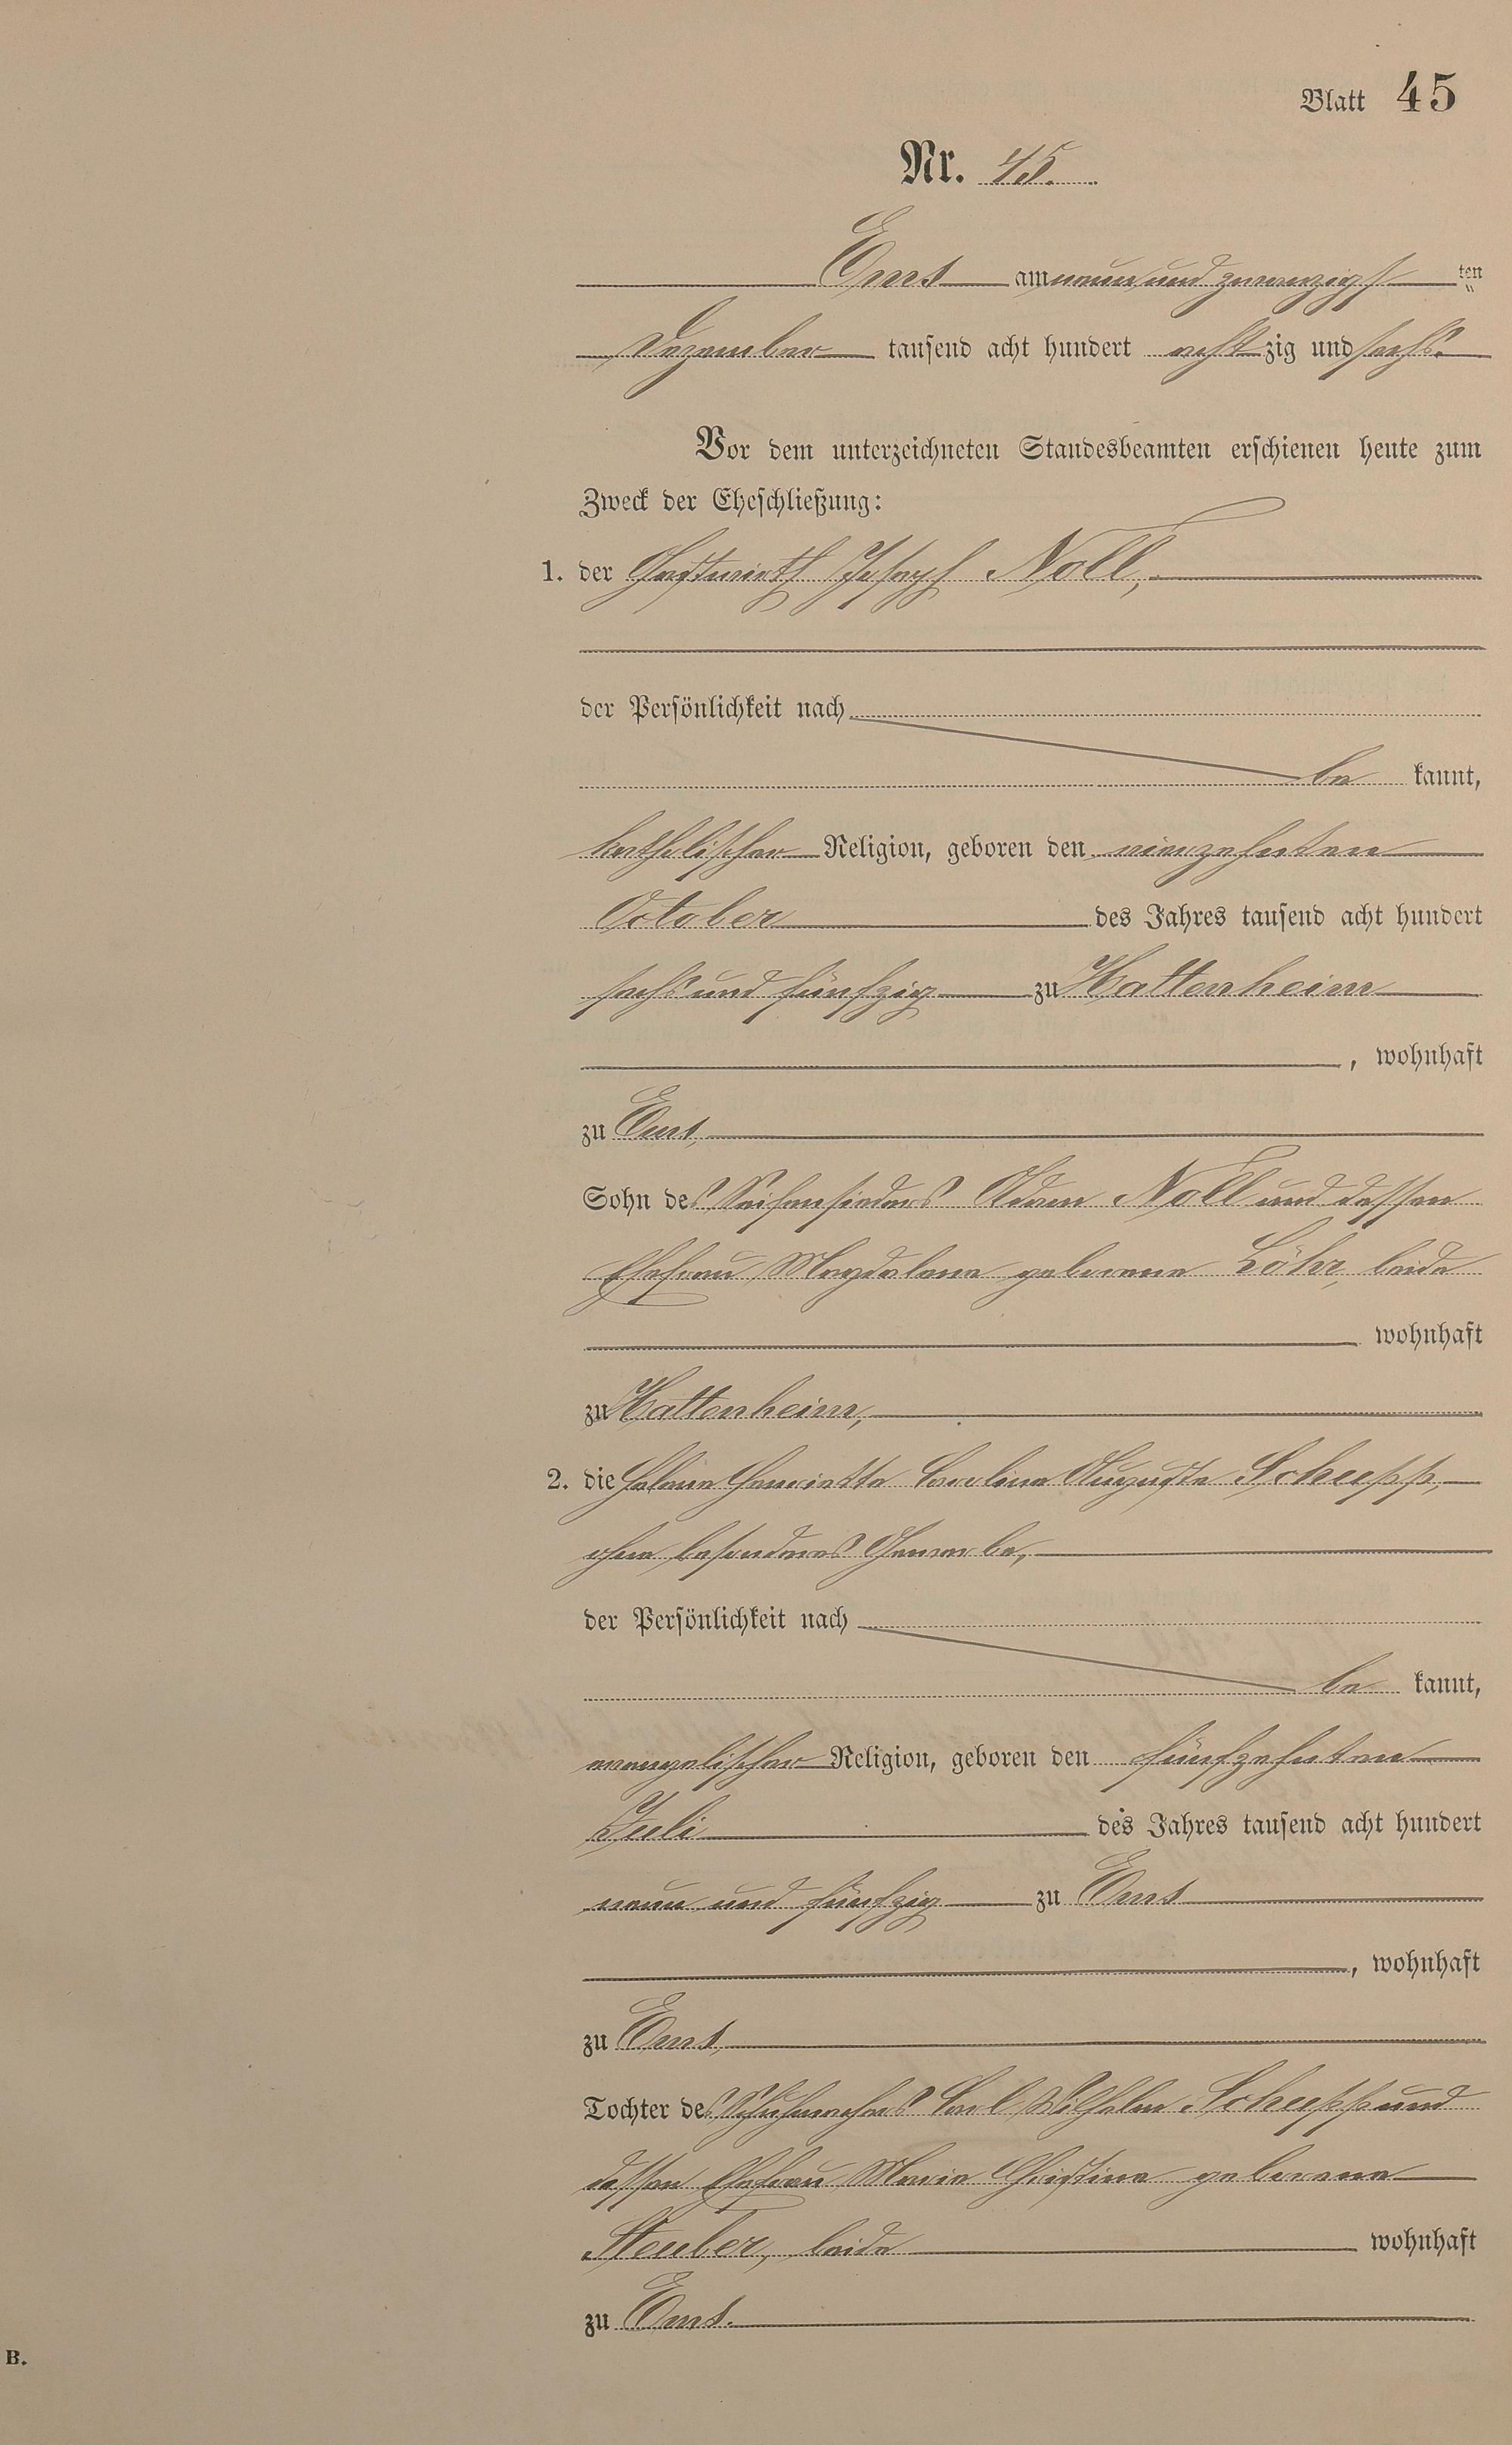 Blatt 45
Nr. 45.
Ems am neun und zwanzigsten
Dezember tausend acht hundert achtzig und sechs.
Vor dem unterzeichneten Standesbeamten erschienen heute zum
Zweck der Eheschließung:
1. der Gastwirth Joseph Noll,
der Persönlichkeit nach
be kannt,
katholischer Religion, geboren den vierzehnten
October des Jahres tausend acht hundert
sechs und fünfzig zu Hattenheim
, wohnhaft
zu Ems,
Sohn des Seifensieders Adam Noll und dessen
Ehefrau Magdalene geborene Löhr, beide
wohnhaft
zu Hattenheim,
2. die Helene Henriette Caroline Auguste Schupp,
ohne besonderes Gewerbe,
der Persönlichkeit nach
be kannt,
evangelischer Religion, geboren den fünfzehnten
Juli des Jahres tausend acht hundert
neun und fünfzig zu Ems
, wohnhaft
zu Ems,
Tochter des Schuhmachers Carl Wilhelm Schupp und
dessen Ehefrau Marie Christine geborene
Steuber, beide wohnhaft
zu Ems.
B.